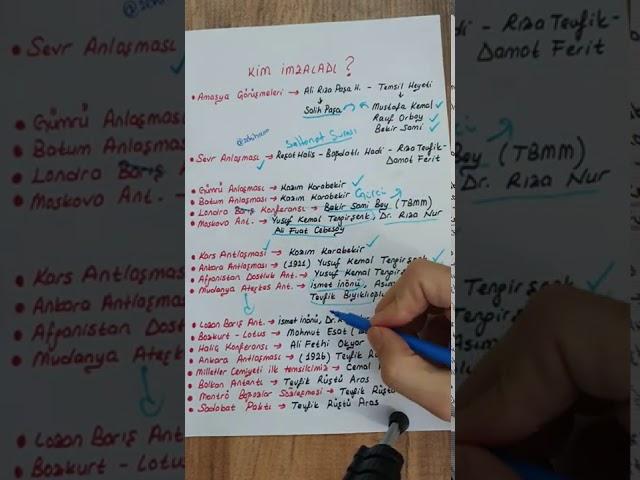 KİM İMZALADI ?
• Amasya Görüşmeleri → Ali Rıza Paşa H. - Temsil Heyeti
Salih Paşa Mustafa Kemal ✓
Rauf Orbay ✓
Bekir Sami ✓
Saltanat Şurası
• Sevr Anlaşması → Reşat Halis - Bağdatlı Hadi - Rıza Tevfik-
Damat Ferit
• Gümrü Anlaşması → Kazım Karabekir ✓
• Batum Anlaşması → Kazım Karabekir Gürcü
• Londra Barış Konferansı → Bekir Sami Bey (TBMM)
• Moskova Ant. → Yusuf Kemal Tengirşenk, Dr. Rıza Nur
Ali Fuat Cebesoy
• Kars Antlaşması → Kazım Karabekir ✓
• Ankara Antlaşması → (1921) Yusuf Kemal Tengirşenk ✓
• Afganistan Dostluk Ant. → Yusuf Kemal Tengirşe
• Mudanya Ateşkes Ant. → ismet inönü, Asım
Tevfik Bıyıklıoğlu
• Lozan Barış Ant. → ismet inönü, Dr. R
• Bozkurt - Lotus → Mahmut Esat (
• Haliç Konferansı → Ali Fethi Okyar
• Ankara Antlaşması → (1926) Tevfik Rü
• Milletler Cemiyeti ilk temsilcimiz → Cemal
• Balkan Antantı → Tevfik Rüştü Aras
• Montrö Boğazlar Sözleşmesi → Tevfik Rüştü
• Sadabat Paktı → Tevfik Rüştü Aras